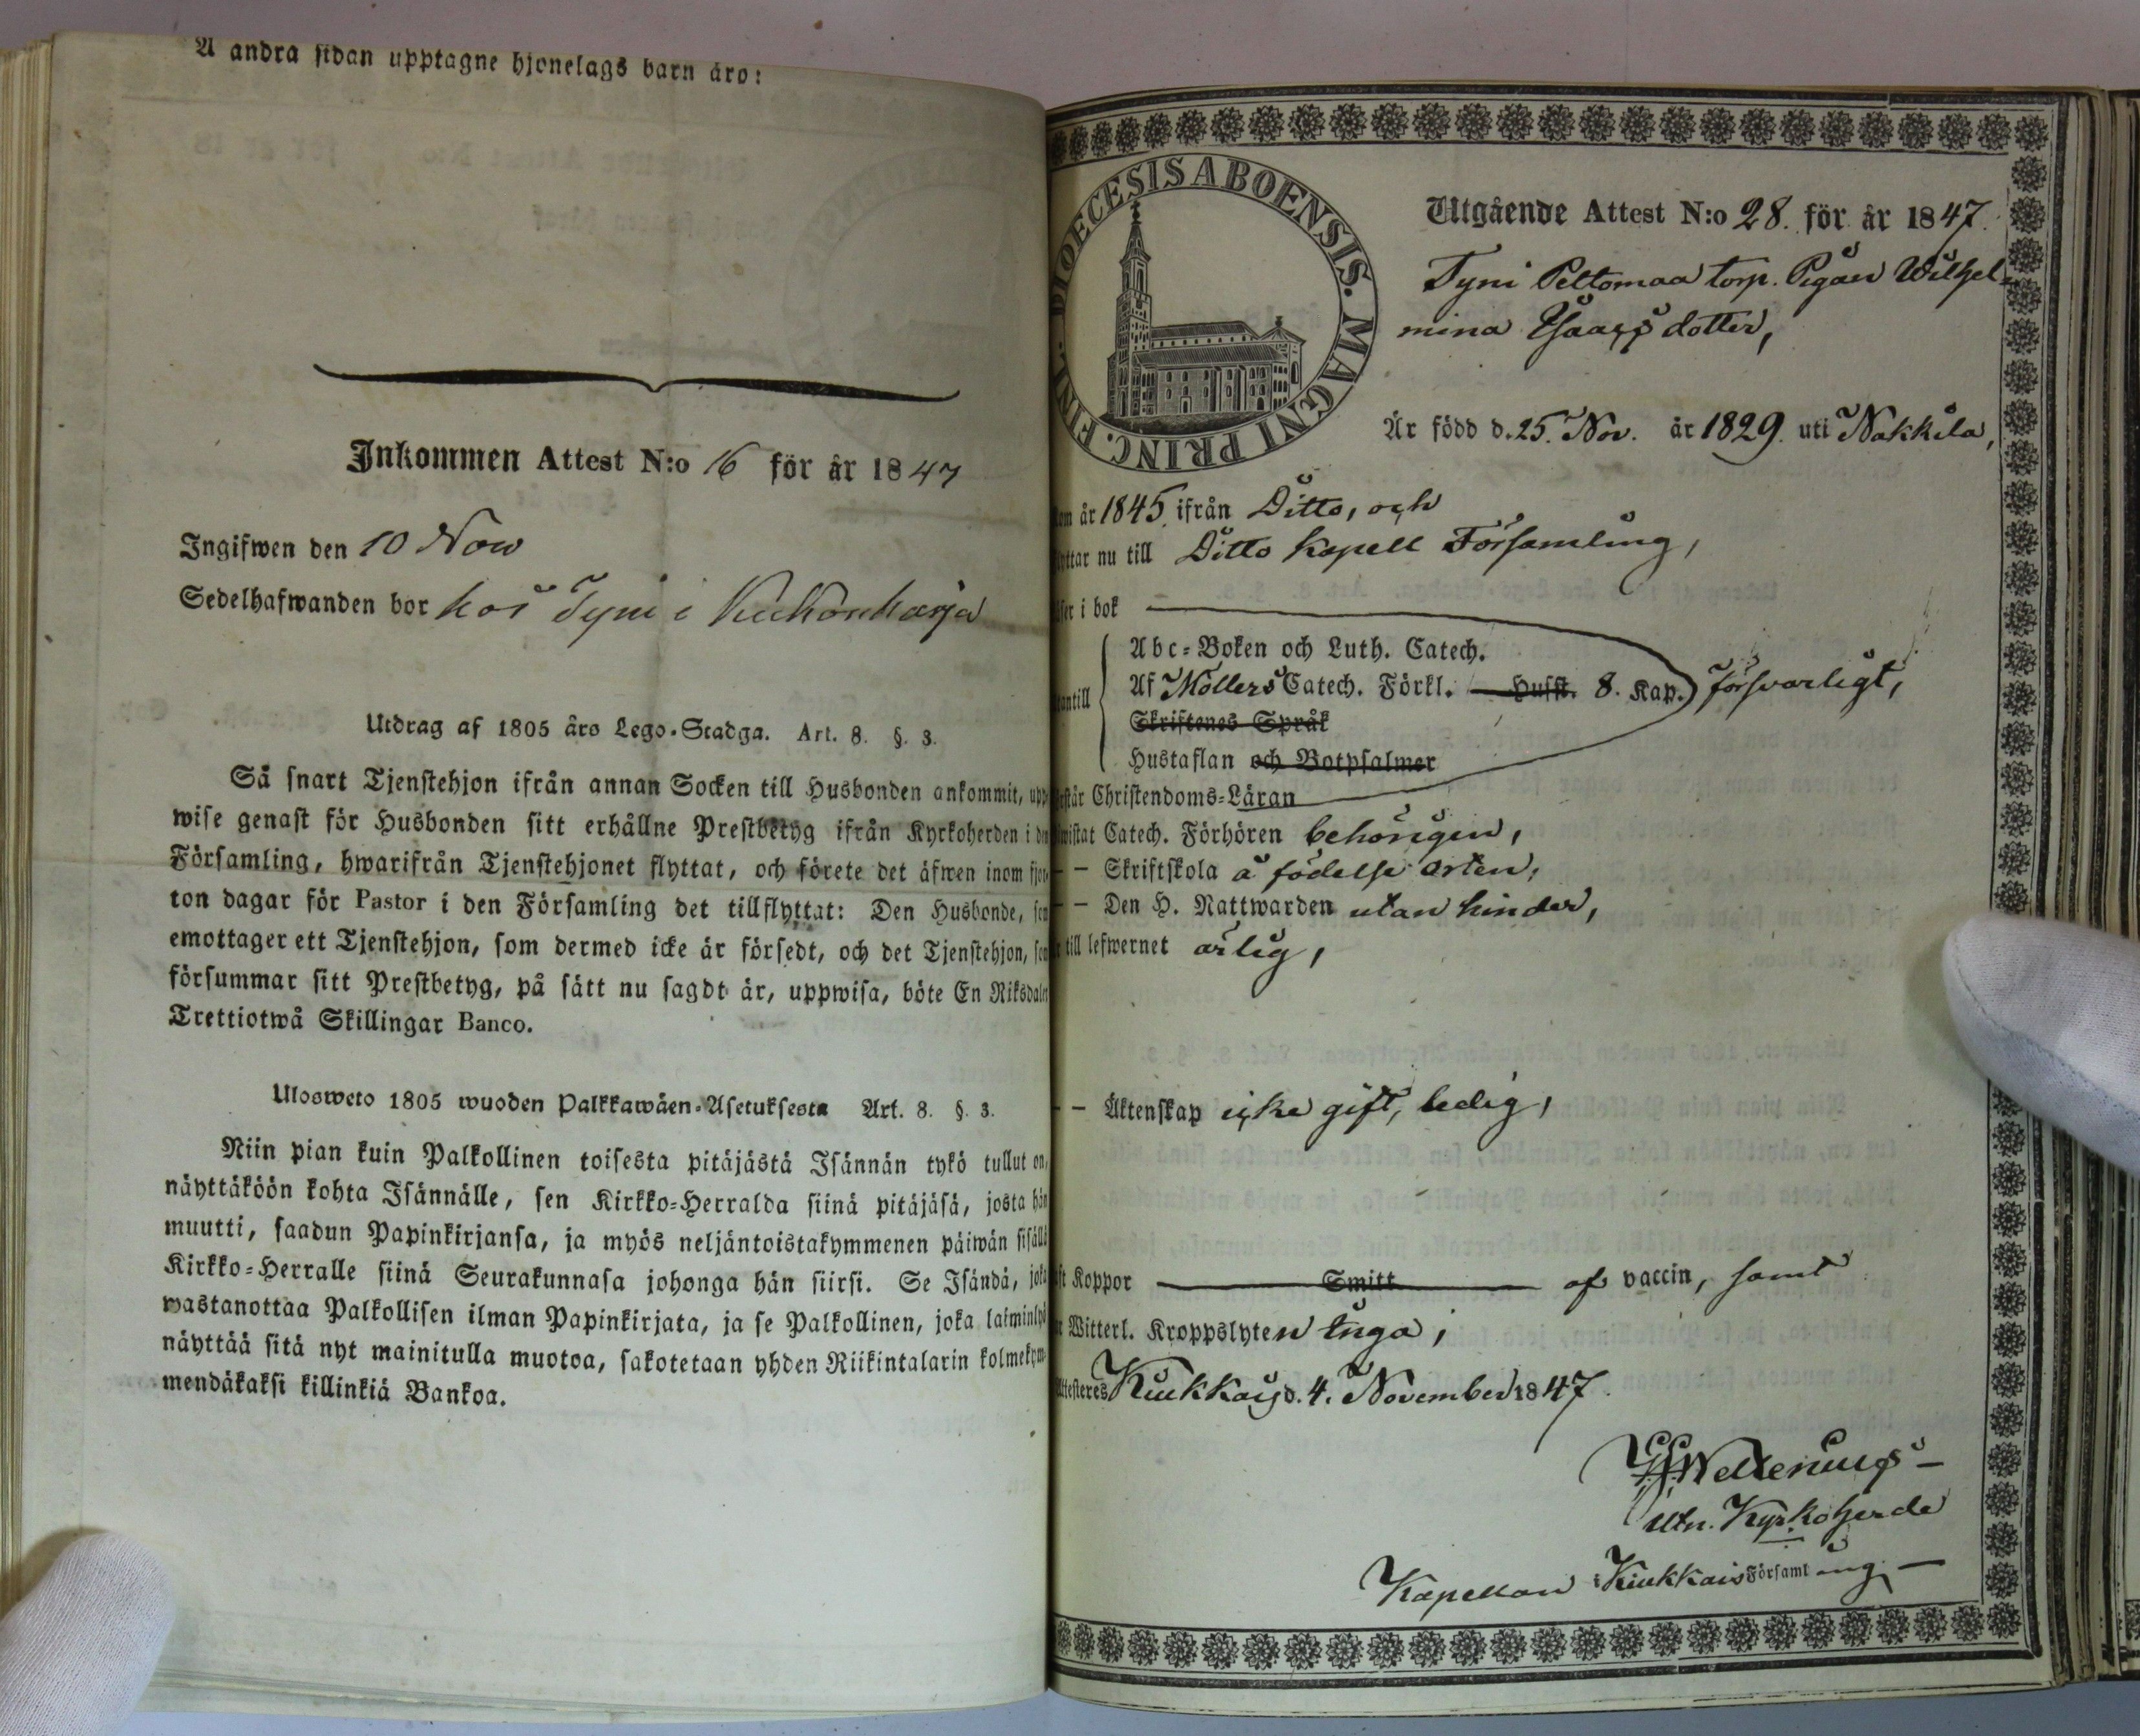 Å andra sidan upptagne hjonelags barn äro:
Inkommen Attest N:o 16 för år 1847
Ingifwen den 10 Nov
Sedelhafwanden bor hos Tyni i
Utdrag af 1805 års Lego-Stadga. Art. 8. §. 3.
Så snart Tjenstehjon ifrån annan Socken till Husbonden ankommit, upp-
wise genast för Husbonden sitt erhållne Prestbetyg ifrån Kyrkoherden i den
Församling, hwarifrån Tjenstehjonet flyttat, och förete det äfwen inom fjor-
ton dagar för Pastor i den Församling det tillflyttat: Den Husbonde, som
emottager ett Tjenstehjon, som dermed icke är försedt, och det Tjenstehjon, som
försummar sitt Prestbetyg, på sätt nu sagdt är, uppwisa, böte En Riksdaler
Trettiotwå Skillingar Banco.
Ulosweto 1805 wuoden Palkkawäen-Asetuksesta Art. 8. §. 3.
Niin pian kuin Palkollinen toisesta pitäjästä Isännän tykö tullut on,
näyttäköön kohta Isännälle, sen Kirkko-Herralda siinä pitäjäsä, josta hän
muutti, saadun Papinkirjansa, ja myös neljäntoistakymmenen päiwän sisällä
Kirkko-Herralle siinä Seurakunnasa johonga hän siirsi. Se Isändä, joka
wastanottaa Palkollisen ilman Papinkirjata, ja se Palkollinen, joka laiminlyö
näyttää sitä nyt mainitulla muotoa, sakotetaan yhden Riikintalarin kolmekym-
mendäkaksi killinkiä Bankoa.
DIOECESIS ABOENSIS. MAGNI PRINC. FINL.
Utgående Attest N:o 28. för år 1847.
Tyni Peltomaa torp. Pigan Wilhel-
mina Isaacsdotter,
Är född d. 25. Nov. år 1829. uti Nakkila,
om år 1845. ifrån Ditto, och
yttar nu till Ditto Kapell Församling,
äser i bok
Abc-Boken och Luth. Catech.
Af Möllers Catech. Förkl. Husst. 8. Kap. försvarligt,
antill
Skriftenes Språk
Hustaflan och Botpsalmer
rstår Christendoms-Läran
wistat Catech. Förhören behörigen,
— — Skriftskola å födelse orten,
— — Den H. Nattwarden utan hinder,
r till lefwernet ärlig,
— — Äktenskap icke gift, ledig,
ft Koppor Smitt af vaccin, samt
r Witterl. Kroppslyten inga;
Attesteres Kiukkais d. 4. November 1847.
Utn. Kyrkoherde
Kapellan i Kiukkais Församling